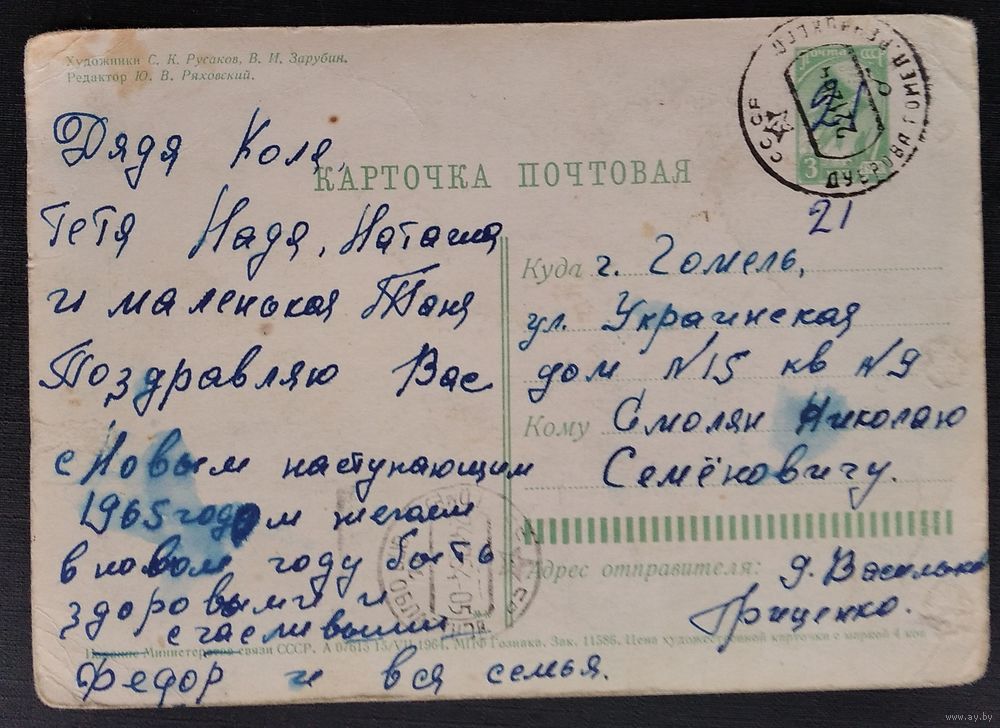 Художники С. К. Русаков, В. И. Зарубин.
Редактор Ю. В. Ряховский.
Почта СССР
3
СССР
КАРТОЧКА ПОЧТОВАЯ
Дядя Коля,
Тетя Надя, Наташа
и маленькая Таня
Поздравляю Вас
с Новым наступающим
1965 годом желаем
в новом году быть
здоровыми и
счасливыми
Федор и вся семья.
21
Куда г. Гомель,
ул. Украинская
дом N15 кв N9
Кому Смолян Николаю
Семёновичу.
Адрес отправителя: д. Васильев
Гриценко.
Издание Министерства связи СССР. А 07613 15/VII 1964. МПФ Гознака. Зак. 11586. Цена художественной карточки с маркой 4 коп.
www.ay.by